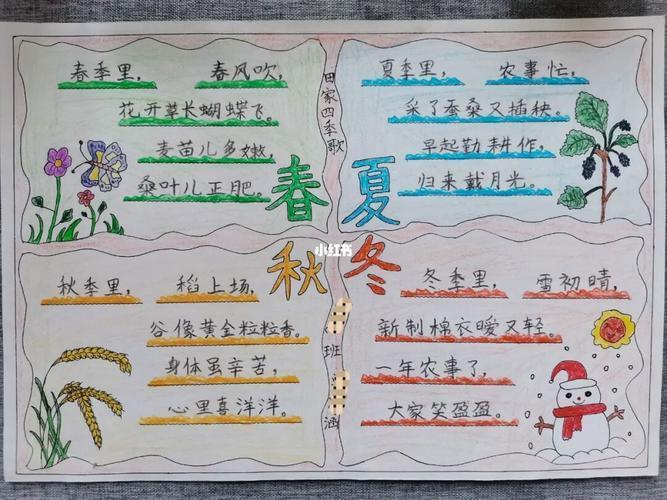 田家四季歌
春季里， 春风吹，
花开草长蝴蝶飞。
麦苗儿多嫩，
桑叶儿正肥。
春
夏季里， 农事忙，
采了蚕桑又插秧。
早起勤耕作，
归来戴月光。
夏
秋
秋季里， 稻上场，
谷像黄金粒粒香。
身体虽辛苦，
心里喜洋洋。
冬
冬季里， 雪初晴，
新制棉衣暖又轻。
一年农事了，
大家笑盈盈。
小红书
班
涵